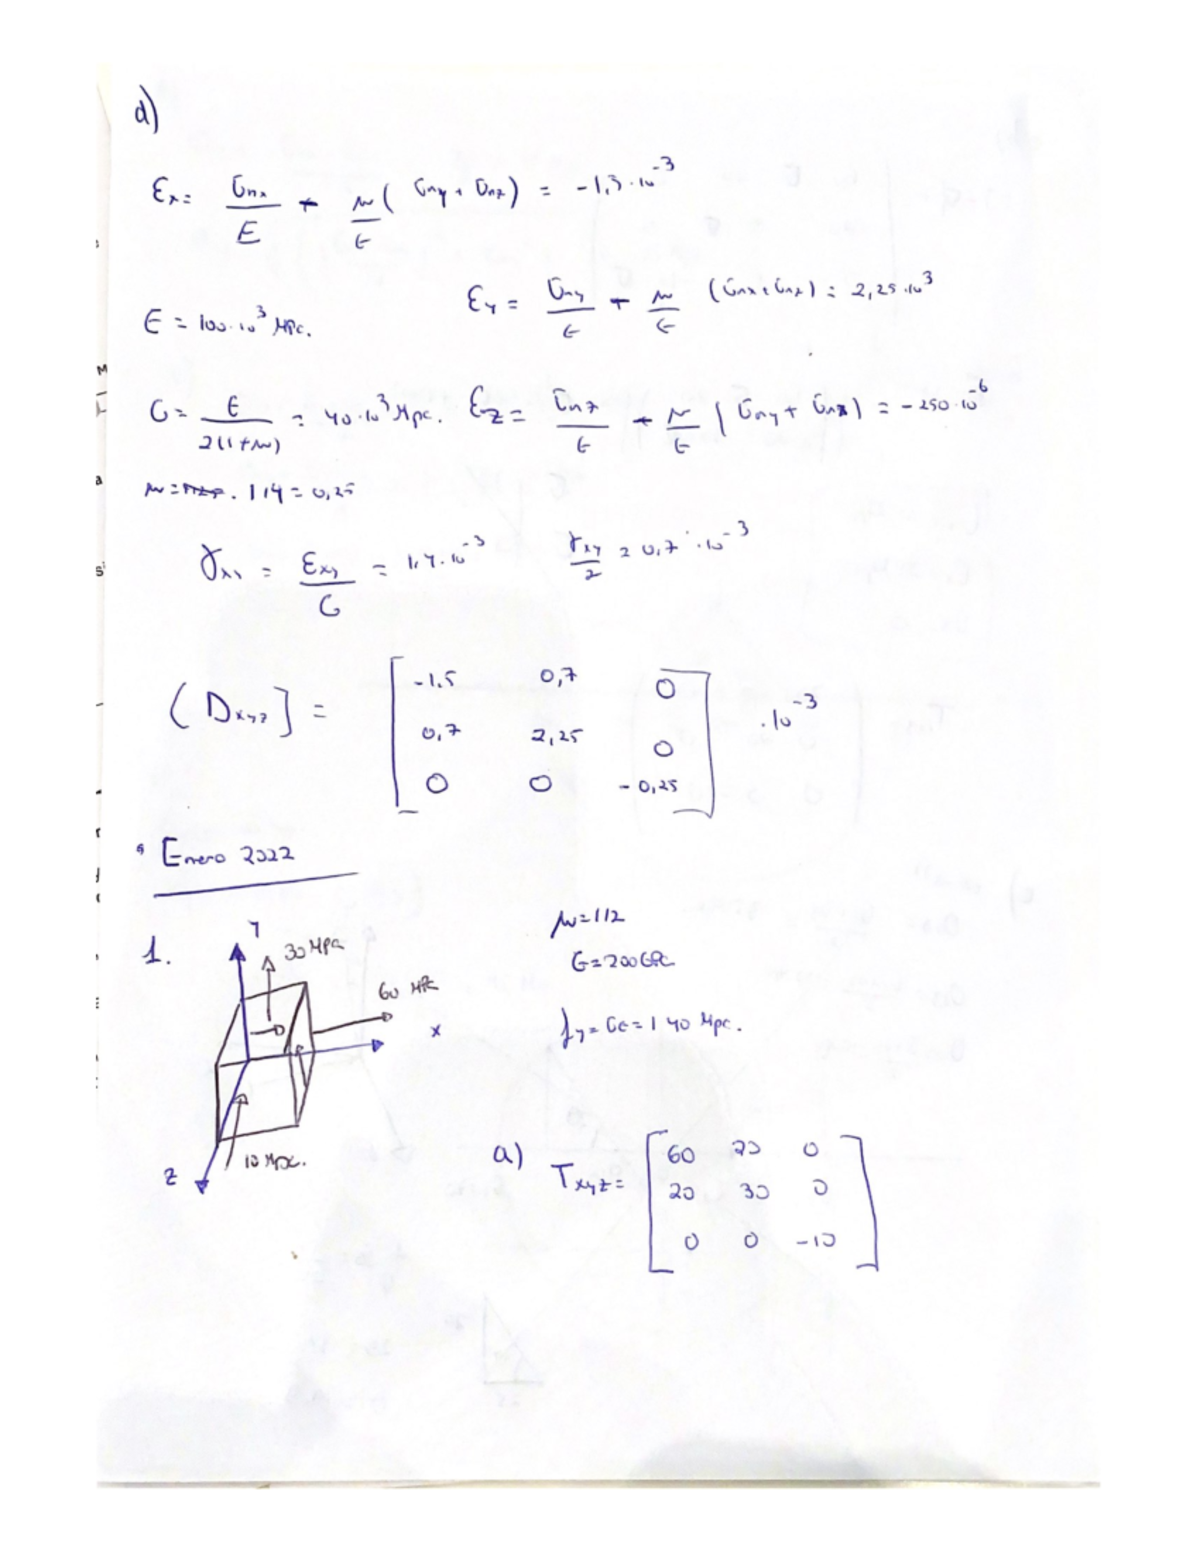 d)
εx = σnx/E + μ/E (σny + σnz) = -1,3·10^-3
E = 100·10^3 MPa.
εy = σny/E + μ/E (σnx + σnz) = 2,25·10^3
G = E/2(1+μ) = 40·10^3 Mpa.
εz = σnz/E + μ/E (σny + σnx) = -250·10^-6
μ = 1/4 = 0,25
γxy = εxy/G = 1,4·10^-3
γxy/2 = 0,7·10^-3
(Dxyz] =
-1.5 0,7 0
0,7 2,25 0
0 0 -0,25
·10^-3
Enero 2022
1.
y
30 MPa
60 MPa
x
10 Mpa.
z
μ=1/2
G=200GPa
fy = σe = 140 Mpa.
a) Txyz =
60 20 0
20 30 0
0 0 -10